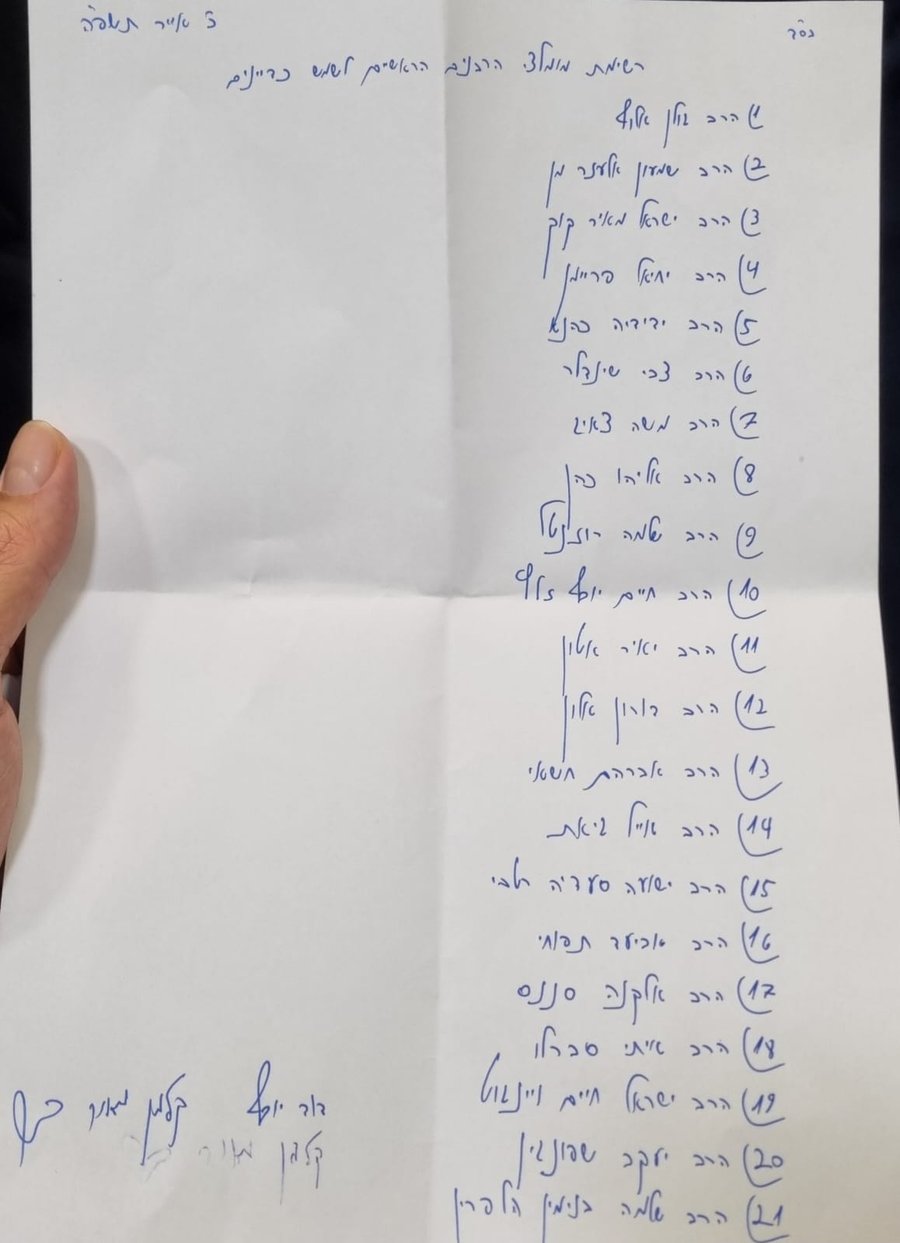 בס"ד
ג' אייר תשפ"ה
רשימת מומלצי הרבנים הראשיים לשמש כדיינים
1) הרב גולן אלוף
2) הרב שמעון אלעזר מן
3) הרב ישראל מאיר קוק
4) הרב יחיאל פריימן
5) הרב ידידיה כהנא
6) הרב צבי שינדלר
7) הרב משה צאיג
8) הרב אליהו כהן
9) הרב שלמה רוזנטל
10) הרב חיים יוסף זולף
11) הרב יאיר אטון
12) הרב דורון אלון
13) הרב אברהם חשאי
14) הרב אייל גיאת
15) הרב ישועה סעדיה
16) הרב אביעד תפוחי
17) הרב אלקנה סננס
18) הרב איתי סברלו
19) הרב ישראל חיים ויינגוט
20) הרב יעקב שפונגין
21) הרב שלמה בנימין הלפרין
דוד יוסף
קלמן מאיר בר
קלמן מאיר